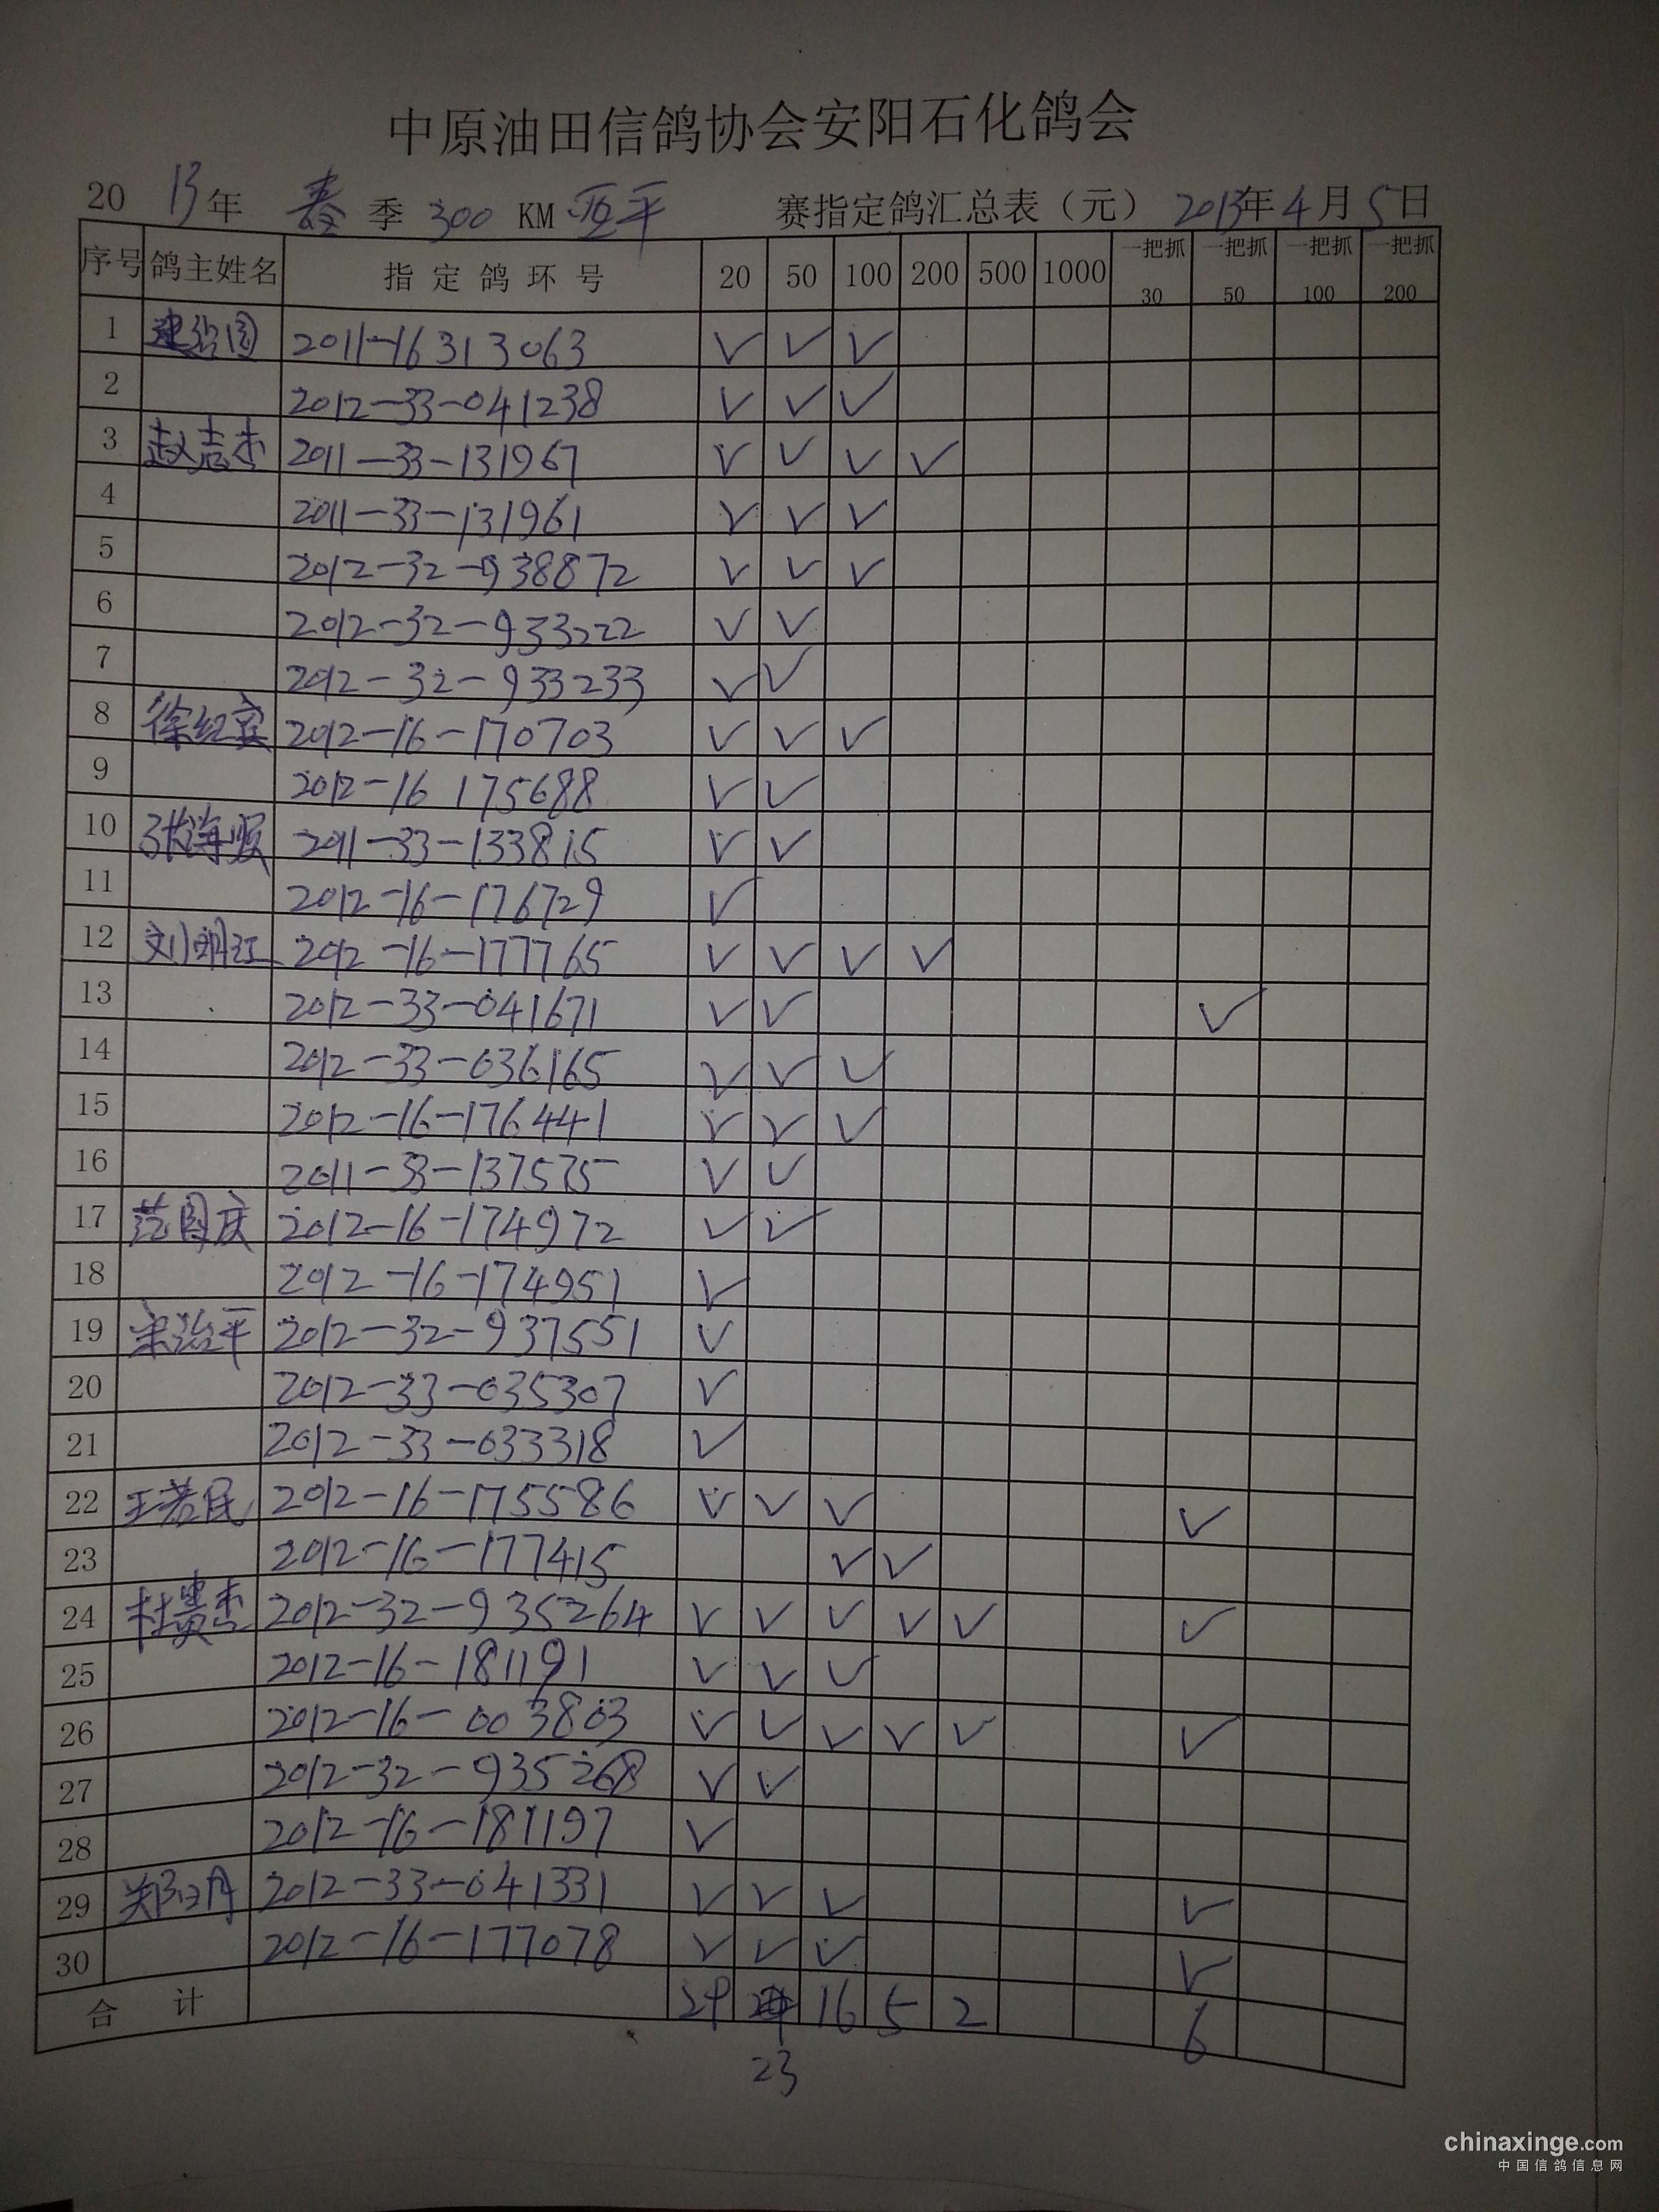 中原油田信鸽协会安阳石化鸽会
20 13年 春季 300 KM 赛指定鸽汇总表（元） 2013年4月5日
序号 鸽主姓名 指定鸽环号 20 50 100 200 500 1000 一把抓30 一把抓50 一把抓100 一把抓200
1 2011-16 313063 ✓ ✓ ✓
2 2012-33-041238 ✓ ✓ ✓
3 赵志杰 2011-33-131967 ✓ ✓ ✓ ✓
4 2011-33-131961 ✓ ✓ ✓
5 2012-32-938872 ✓ ✓ ✓
6 2012-32-933222 ✓ ✓
7 2012-32-933233 ✓ ✓
8 徐红宾 2012-16-170703 ✓ ✓ ✓
9 2012-16 175688 ✓ ✓
10 张海顺 2011-33-133815 ✓ ✓
11 2012-16-176729 ✓
12 刘明江 2012-16-177765 ✓ ✓ ✓ ✓
13 2012-33-041671 ✓ ✓ ✓
14 2012-33-036165 ✓ ✓ ✓
15 2012-16-176441 ✓ ✓ ✓
16 2011-33-137575 ✓ ✓
17 范国庆 2012-16-174972 ✓ ✓
18 2012-16-174951 ✓
19 宋治平 2012-32-937551 ✓
20 2012-33-035307 ✓
21 2012-33-033318 ✓
22 王若民 2012-16-175586 ✓ ✓ ✓ ✓
23 2012-16-177415 ✓ ✓
24 杜贵杰 2012-32-935264 ✓ ✓ ✓ ✓ ✓ ✓
25 2012-16-181191 ✓ ✓ ✓
26 2012-16-003803 ✓ ✓ ✓ ✓ ✓ ✓
27 2012-32-935268 ✓ ✓
28 2012-16-181197 ✓
29 2012-33-041331 ✓ ✓ ✓ ✓
30 2012-16-177078 ✓ ✓ ✓ ✓
合计 29 16 5 2 6
23
chinaxinge.com
中国信鸽信息网